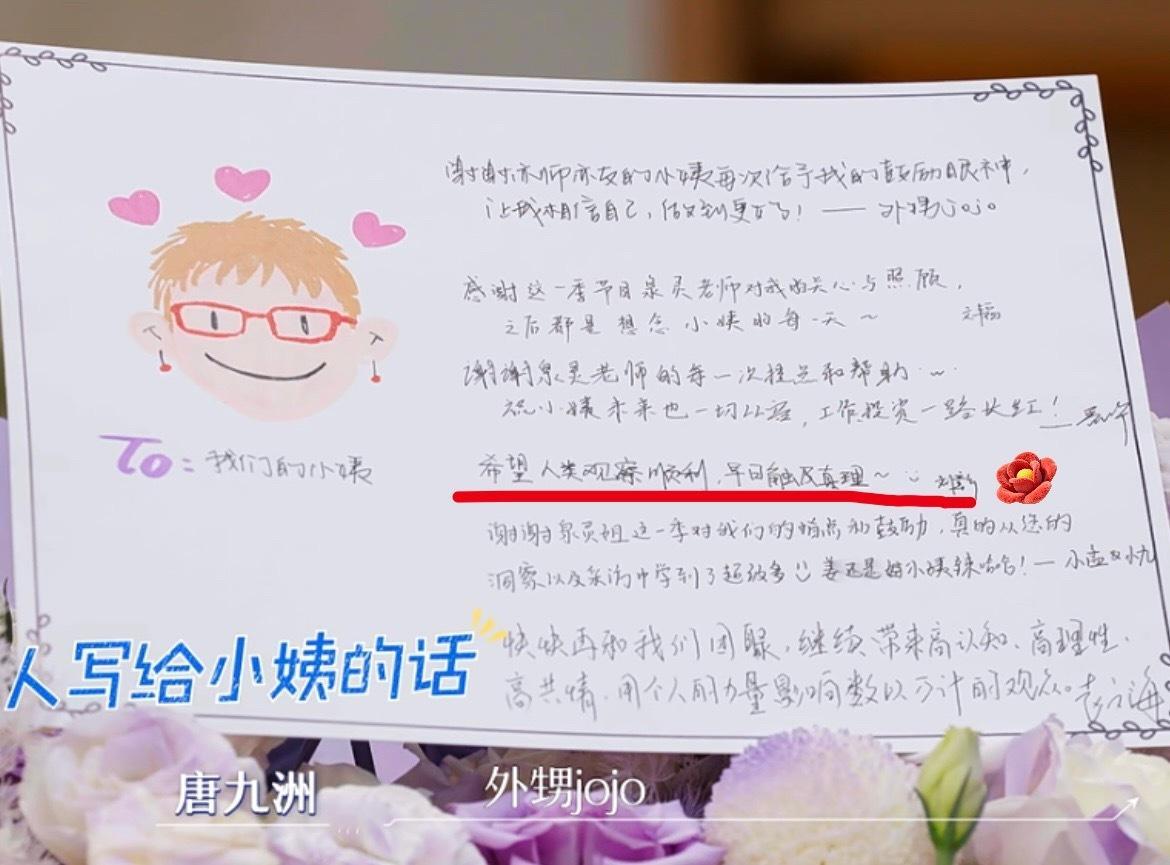 谢谢亦师亦友的小姨再次给予我的鼓励眼神,
让我相信自己,做到更好了! —— 外甥jojo
感谢这一季节目泉灵老师对我的关心与照顾,
之后都是想念小姨的每一天~ 文韬
谢谢泉灵老师的每一次提点和帮助~~
祝小姨未来也一切从容,工作投资一路长红!
To:我们的小姨
希望人类观察顺利,早日触及真理~
谢谢泉灵姐这一季对我们的指点和鼓励,真的从您的
洞察以及采访中学到了超级多 姜还是姨小姨辣哈哈! — 小孟&小九
快快再和我们团聚,继续带来高认知、高理性、
高共情,用个人的力量影响数以万计的观众。
人写给小姨的话
唐九洲
外甥jojo